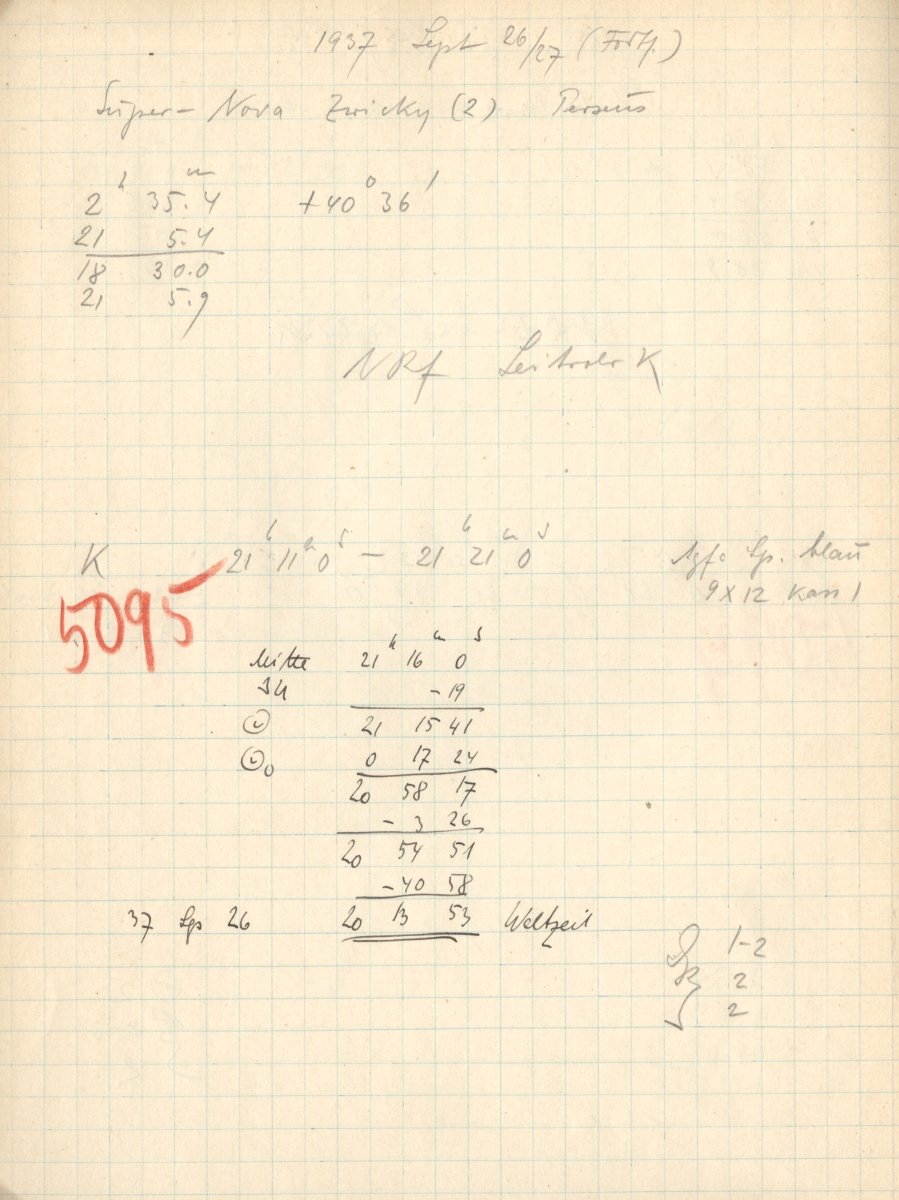 1937 Sept 26/27 (Forts.)
Super-Nova Zwicky (2) Perseus
2h 35.4m +40° 36'
21 5.4
18 30.0
21 5.9
NRf Leitrohr K
K 21h 11m 0s - 21h 21m 0s Agfa Sp. blau
9x12 Kass 1
5095
Mitte 21h 16m 0s
-19
21 15 41
0 17 24
20 58 17
- 3 26
20 54 51
- 40 58
37 Sep 26 20 13 53 Weltzeit
1-2
2
2